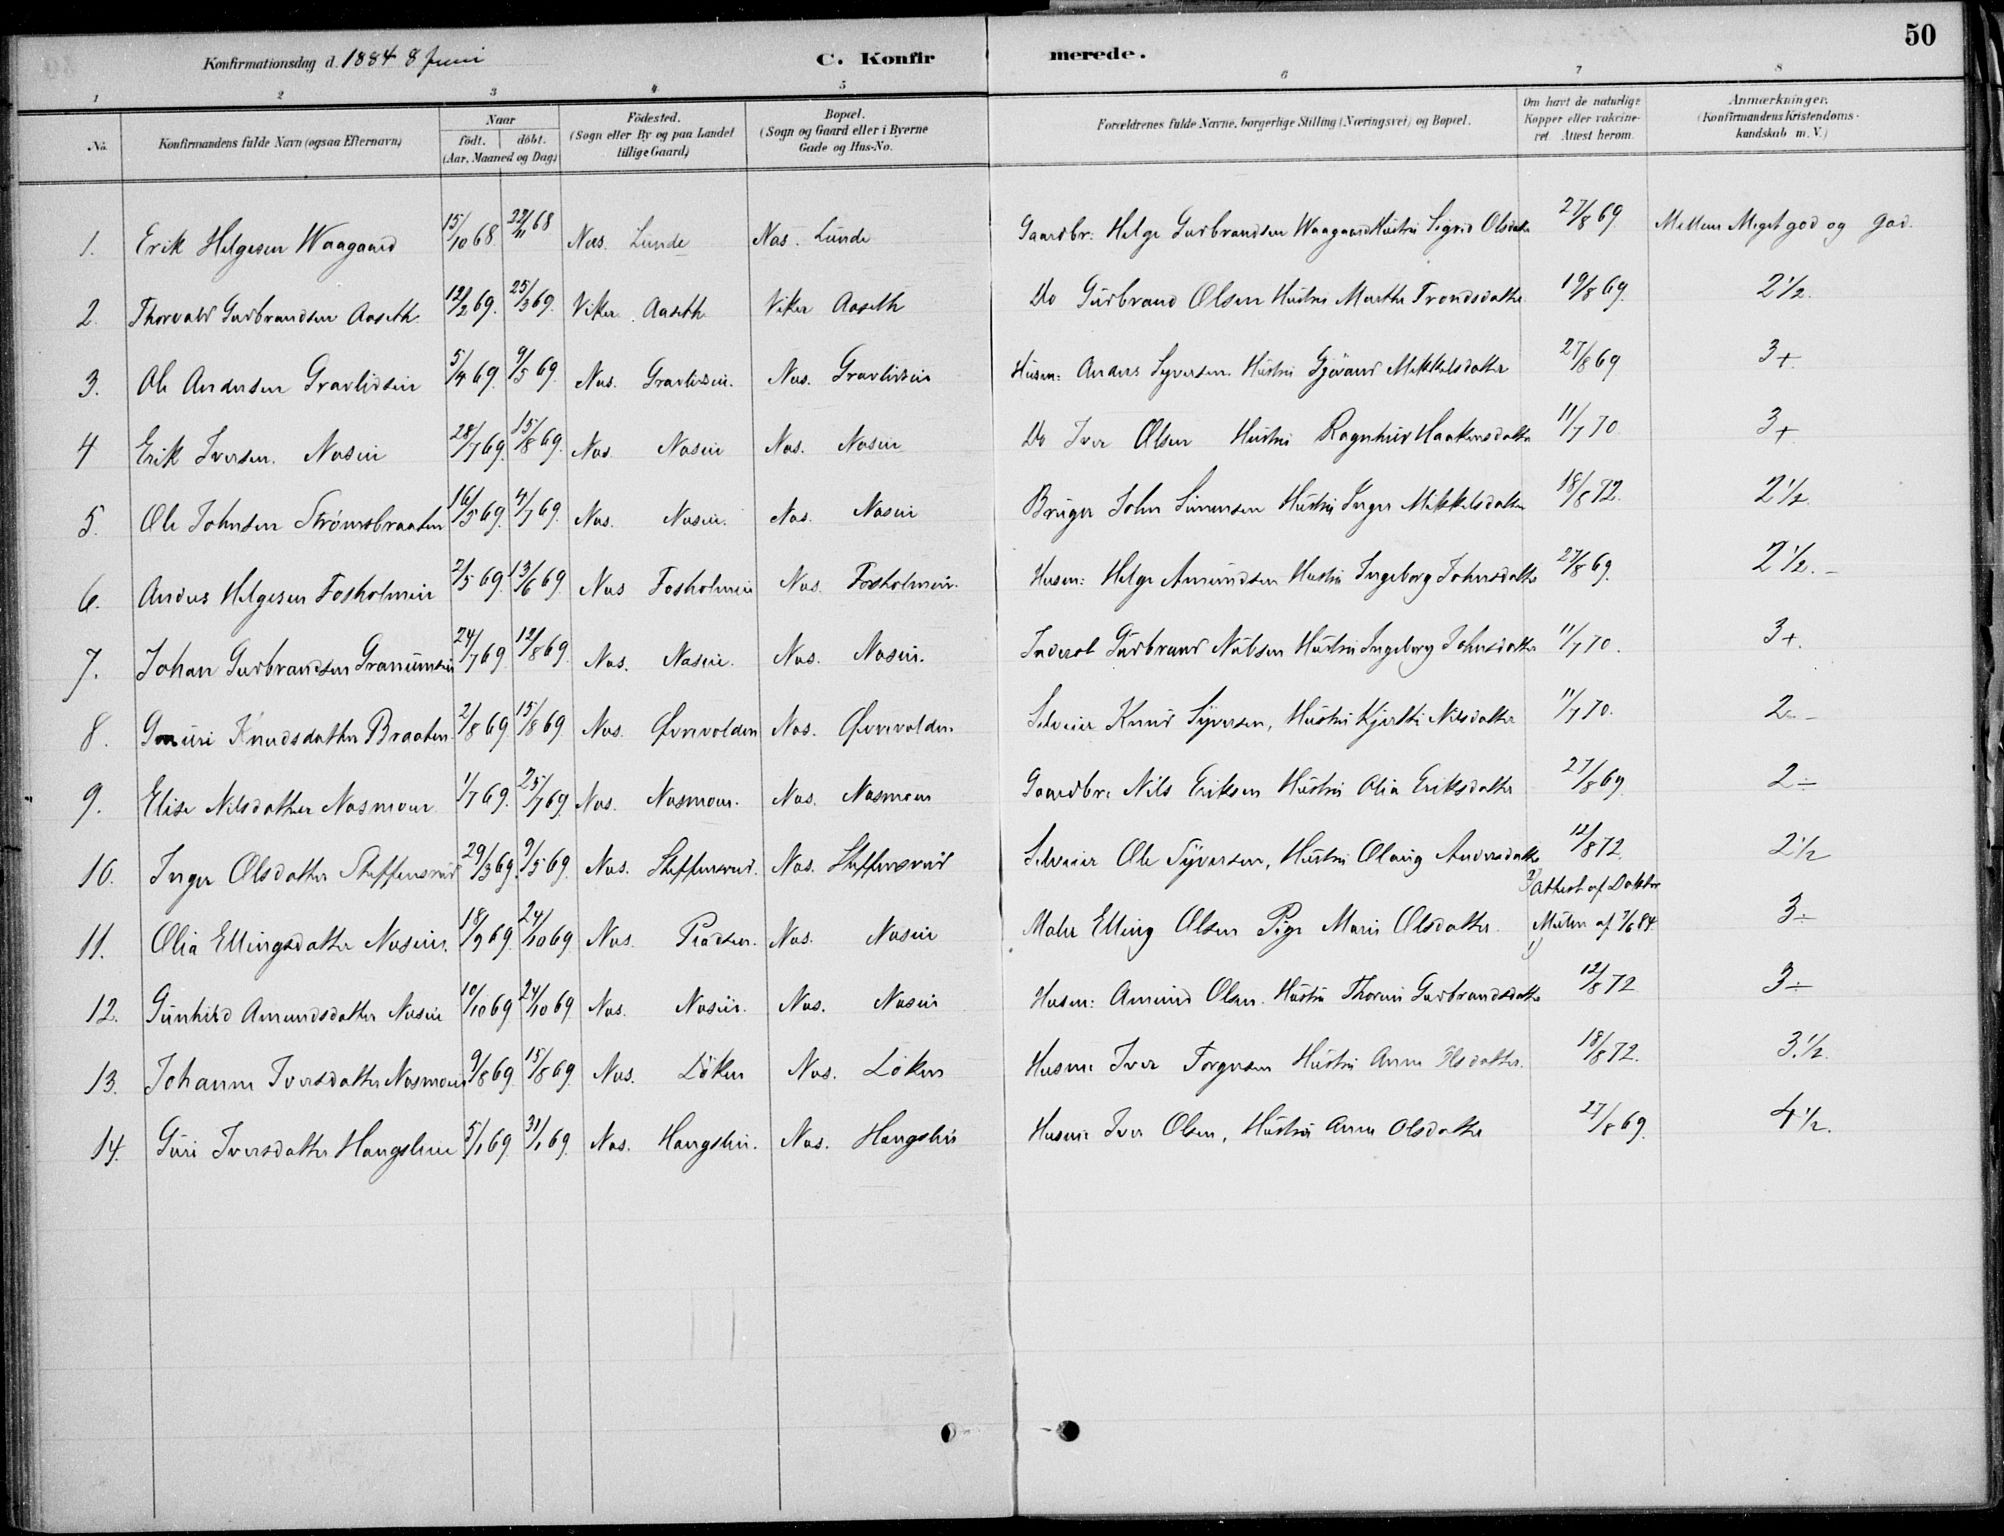 50
Konfirmationsdag d. 1884 8 Juni C. Konfirmerede.
1 2 3 4 5 6 7 8
No. Konfirmandens fulde Navn (ogsaa Efternavn) Naar födt. döbt. (Aar, Maaned og Dag) Födested. (Sogn eller By og paa Landet tillige Gaard) Bopæl. (Sogn og Gaard eller i Byerne Gade og Hus-No. Forældrenes fulde Navne, borgerlige Stilling (Næringsvei) og Bopæl. Om havt de naturlige Kopper eller vakcineret. Attest herom. Anmærkninger. (Konfirmandens Kristendomskundskab m. V.)
1. Erik Helgesen Waagaard 15/10 68 22/11 68 Næs. Lunde Næs. Lunde Gaardbr: Helge Gudbrandsen Waagaard Hustru Sigrid Olsdatter 27/8 69 Mellem Meget god og god.
2. Thorvald Gudbrandsen Aaseth 12/2 69. 25/3 69. Viker Aaseth Viker Aaseth Do Gudbrand Olsen Hustru Marthe Trondsdatter 19/8 69. 2 1/2.
3. Ole Andersen Gravlideie 5/4 69. 9/5 69. Næs. Gravlideie. Næs. Gravlideie Husm: Anders Syversen. Hustru Gjøvand Mikkelsdatter 27/8 69 3+
4 Erik Iversen. Næseie 28/7 69. 15/8 69. Næs. Næseie Næs. Næseie Do Iver Olsen Hustru Ragnhild Haakensdatter 11/7 70. 3+
5. Ole Johnsen Strømsbraaten 16/5 69. 4/7 69. Næs. Næseie. Næs. Næseie Bruger John Simensen Hustru Inger Mikkelsdatter 18/8 72. 2 1/2.
6. Anders Helgesen Fosholmeie 2/5 69. 13/6 69. Næs Fosholmeie Næs. Fosholmeie. Husm: Helge Amundsen Hustru Ingeborg Johnsdatter 27/8 69. 2 1/2. -
7. Johan Gudbrandsen Granumseie 24/7 69 12/8 69. Næs. Næseie. Næs. Næseie. Inderst Gudbrand Nilsen Hustru Ingeborg Johnsdatter 11/7 70. 3+.
8. Guri Knudsdatter Braaten 2/8 69 15/8 69. Næs. Øvrevolden Næs. Øvrevolden. Selveier Knud Syversen, Hustru Kjersti Nilsdatter 11/7 70. 2 -
9. Elise Nilsdatter Næsmoen 1/7 69. 25/7 69. Næs. Næsmoen. Næs. Næsmoen Gaardbr: Nils Eriksen Hustru Olia Eriksdatter 27/8 69. 2÷
10. Inger Olsdatter Steffensrud 29/3 69. 9/5 69. Næs. Steffensrud. Næs. Steffensrud Selveier Ole Syversen, Hustru Olaug Andersdatter 12/8 72. 2 1/2
11. Olia Ellingsdatter Næseie. 18/9 69. 24/10 69 Næs. Pladsen. Næs. Næseie Maler Elling Olsen Pige Marie Olsdatter. Attest af Doktor af 7/6 84. 3÷
12. Gunhild Amundsdatter Næseie 10/10 69 24/10 69. Næs. Næseie. Næs. Næseie Husm: Amund Olsen. Hustru Thorine Gudbrandsdatter 12/8 72 3÷
13. Johanne Iversdatter Næsmoen 9/8 69. 15/8 69. Næs. Löken Næs. Löken Husm: Iver Torgersen Hustru Anne Olsdatter. 18/8 72. 3. 1/2.
14. Guri Iversdatter Haugslieie 5/1 69. 31/1 69. Næs. Haugslieie. Næs. Haugslieie Husm: Iver Olsen, Hustru Anne Olsdatter 27/8 69. 4 1/2.